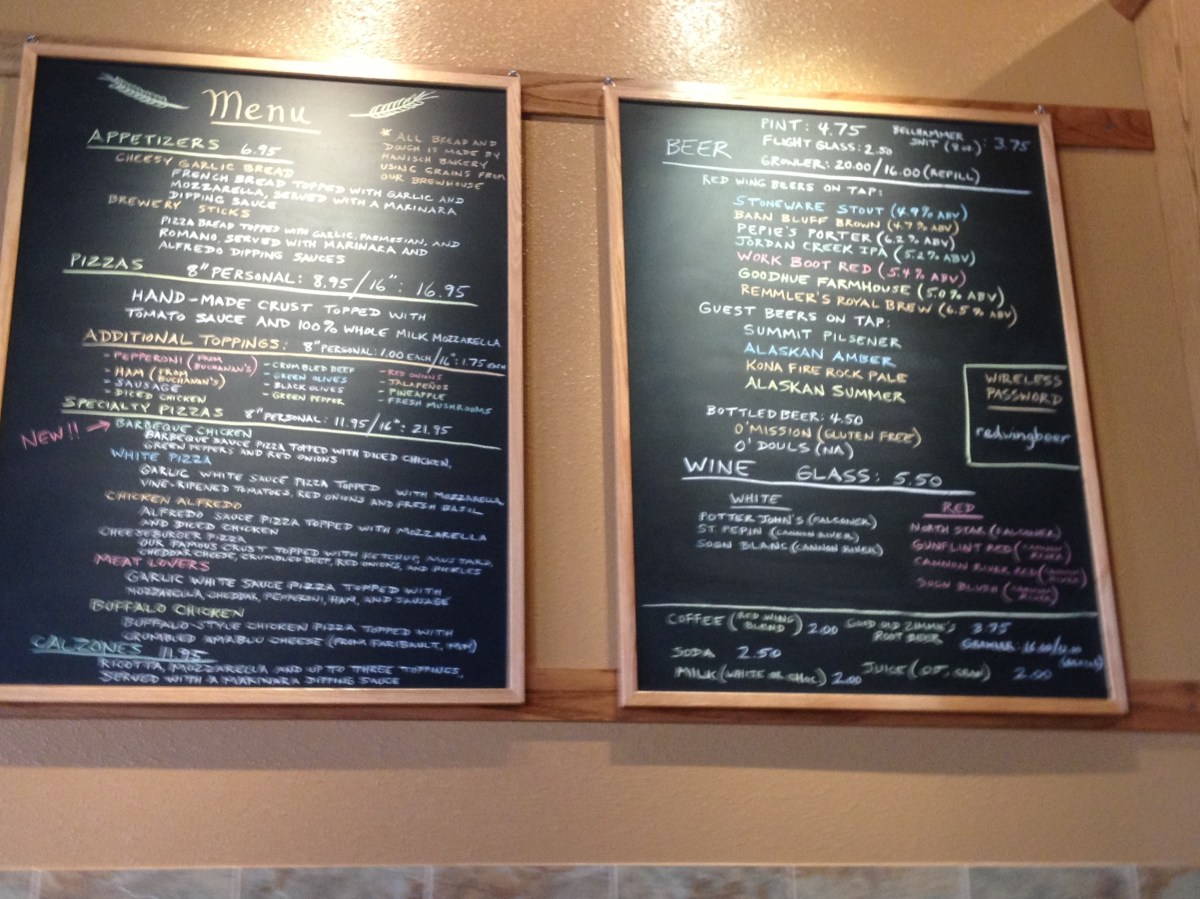 Menu
APPETIZERS 6.95
* ALL BREAD AND
DOUGH IS MADE BY
HANISCH BAKERY
USING GRAINS FROM
OUR BREWHOUSE
CHEESY GARLIC BREAD
FRENCH BREAD TOPPED WITH GARLIC AND
MOZZARELLA, SERVED WITH A MARINARA
DIPPING SAUCE
BREWERY STICKS
PIZZA BREAD TOPPED WITH GARLIC, PARMESIAN, AND
ROMANO, SERVED WITH MARINARA AND
ALFREDO DIPPING SAUCES
PIZZAS 8" PERSONAL: 8.95/16": 16.95
HAND-MADE CRUST TOPPED WITH
TOMATO SAUCE AND 100% WHOLE MILK MOZZARELLA
ADDITIONAL TOPPINGS: 8" PERSONAL: 1.00 EACH/16": 1.75 EACH
- PEPPERONI (FROM BUCHANAN'S)
- HAM (FROM BUCHANAN'S)
- SAUSAGE
- DICED CHICKEN
- CRUMBLED BEEF
- GREEN OLIVES
- BLACK OLIVES
- GREEN PEPPER
- RED ONIONS
- JALAPEÑOS
- PINEAPPLE
- FRESH MUSHROOMS
SPECIALTY PIZZAS 8" PERSONAL: 11.95/16": 21.95
NEW!! → BARBEQUE CHICKEN
BARBEQUE SAUCE PIZZA TOPPED WITH DICED CHICKEN,
GREEN PEPPERS AND RED ONIONS
WHITE PIZZA
GARLIC WHITE SAUCE PIZZA TOPPED WITH MOZZARELLA
VINE-RIPENED TOMATOES, RED ONIONS AND FRESH BASIL
CHICKEN ALFREDO
ALFREDO SAUCE PIZZA TOPPED WITH MOZZARELLA
AND DICED CHICKEN
CHEESEBURGER PIZZA
OUR FAMOUS CRUST TOPPED WITH KETCHUP, MUSTARD,
CHEDDAR CHEESE, CRUMBLED BEEF, RED ONIONS, AND PICKLES
MEAT LOVERS
GARLIC WHITE SAUCE PIZZA TOPPED WITH
MOZZARELLA, CHEDDAR, PEPPERONI, HAM, AND SAUSAGE
BUFFALO CHICKEN
BUFFALO-STYLE CHICKEN PIZZA TOPPED WITH
CRUMBLED AMABLU CHEESE (FROM FARIBAULT, MN)
CALZONES 11.95
RICOTTA, MOZZARELLA AND UP TO THREE TOPPINGS,
SERVED WITH A MARINARA DIPPING SAUCE
BEER
PINT: 4.75
FLIGHT GLASS: 2.50
BELLHAMMER
SNIT (8oz): 3.75
GROWLER: 20.00/16.00 (REFILL)
RED WING BEERS ON TAP:
STONEWARE STOUT (4.9% ABV)
BARN BLUFF BROWN (4.7% ABV)
PEPIE'S PORTER (6.2% ABV)
JORDAN CREEK IPA (5.2% ABV)
WORK BOOT RED (5.4% ABV)
GOODHUE FARMHOUSE (5.0% ABV)
REMMLER'S ROYAL BREW (6.5% ABV)
GUEST BEERS ON TAP:
SUMMIT PILSENER
ALASKAN AMBER
KONA FIRE ROCK PALE
ALASKAN SUMMER
BOTTLED BEER: 4.50
O'MISSION (GLUTEN FREE)
O'DOULS (NA)
WIRELESS
PASSWORD
redwingbeer
WINE GLASS: 5.50
WHITE
POTTER JOHN'S (FALCONER)
ST. PEPIN (CANNON RIVER)
SOGN BLANC (CANNON RIVER)
RED
NORTH STAR (FALCONER)
GUNFLINT RED (CANNON RIVER)
CANNON RIVER RED (CANNON RIVER)
SOGN BLUSH (CANNON RIVER)
COFFEE (RED WING BLEND) 2.00
GOOD OLD ZIMMIE'S
ROOT BEER 3.75
GROWLER:
SODA 2.50
MILK (WHITE OR CHOC) 2.00
JUICE (OJ, CRAN) 2.00